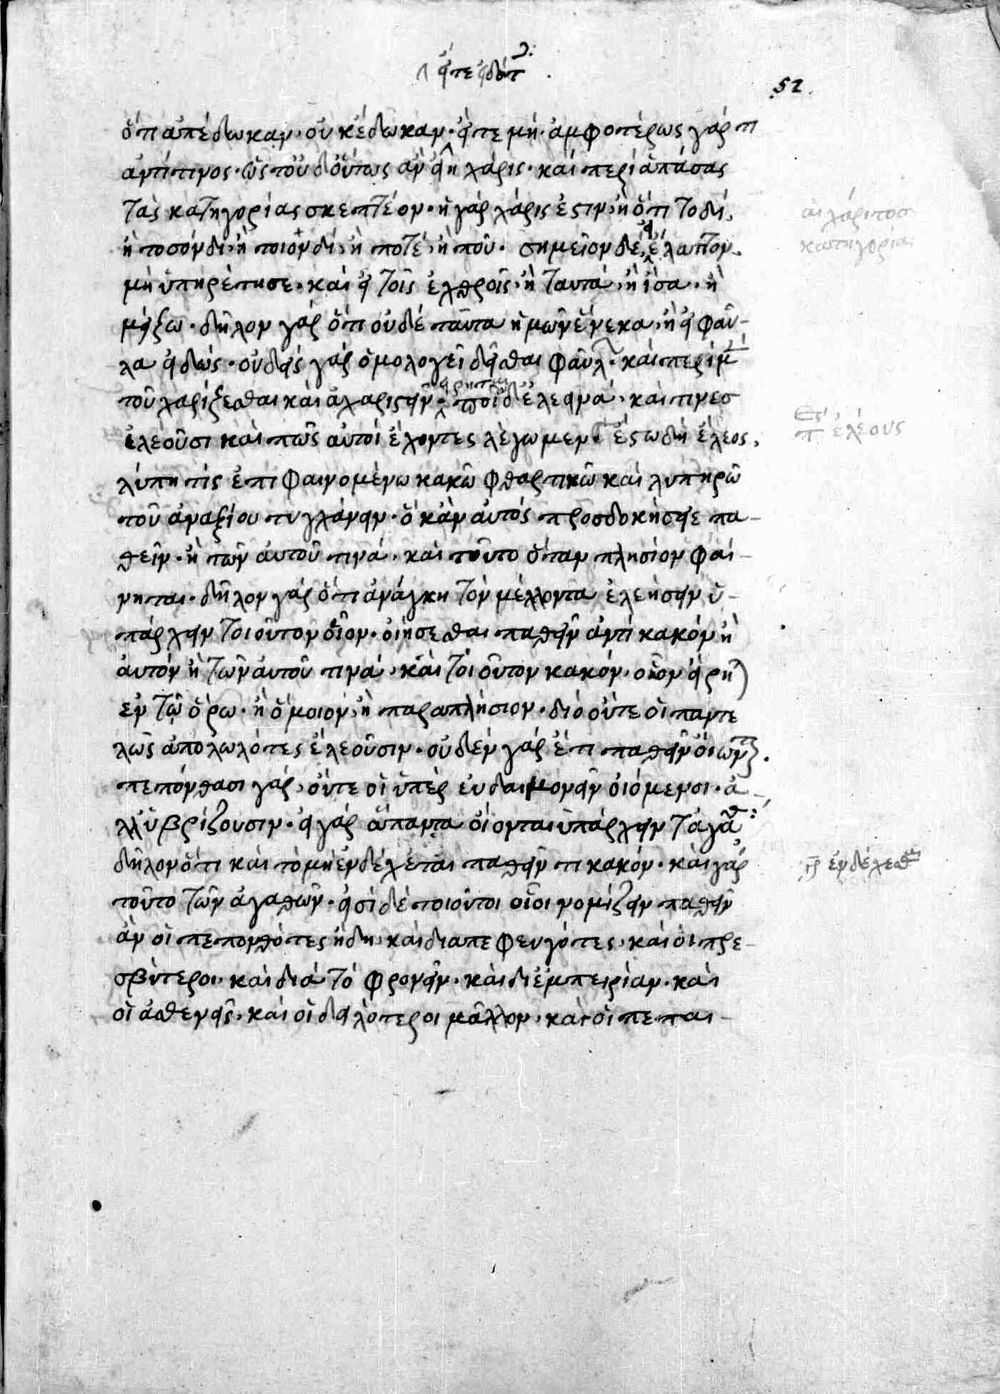 εἴτε ἐδότ
52
ὅτι ἀπέδωκαν· οὐκ ἔδωκαν· εἴτε μή· ἀμφοτέρως γάρ τι
ἀντί τινος· ὥς τ' οὐδ' οὕτως ἂν εἴη χάρις· καὶ περὶ ἁπάσας
τὰς κατηγορίας σκεπτέον· ἡ γὰρ χάρις ἐστὶν, ἢ ὅτι τοδί,
ἢ τοσόνδι, ἢ ποιόνδι, ἢ ποτέ, ἢ ποῦ· σημεῖον δὲ, εἰ ἔλαττον
αἱ χάριτος
κατηγορία
μὴ ὑπηρέτησε· καὶ εἰ τοῖς ἐχθροῖς· ἢ ταυτὰ, ἢ ἴσα· ἢ
μείζω· δῆλον γὰρ ὅτι οὐδὲ ταῦτα ἡμῶν ἕνεκα, ἢ εἰ φαῦ-
λα εἰδώς· οὐδεὶς γὰρ ὁμολογεῖ δεῖσθαι φαύλ· καὶ περὶ μ
τοῦ χαρίζεσθαι καὶ ἀχαριστεῖν εἴρηται· ποῖα δ' ἐλεεινά, καὶ τίνας
ἐλεοῦσι καὶ πῶς αὐτοὶ ἔχοντες λέγωμεν· ἔστω δὴ ἔλεος,
π ἐλέους
λύπη τὶς ἐπὶ φαινομένω κακῶ φθαρτικῶ καὶ λυπηρῶ
τοῦ ἀναξίου τυγχάνειν· ὃ κἂν αὐτὸς προσδοκήσειε πα-
θεῖν· ἢ τῶν αὑτοῦ τινά· καὶ τοῦτο ὅταν πλησίον φαί-
νηται· δῆλον γὰρ ὅτι ἀνάγκη τὸν μέλλοντα ἐλεήσειν ὑ-
πάρχειν τοιοῦτον οἷον· οἰήσεσθαι παθεῖν ἄν τι κακὸν ἢ
αὐτὸν ἢ τῶν αὑτοῦ τινά· καὶ τοιοῦτον κακόν, οἷον εἴρη
ἐν τῷ ὅρω· ἢ ὅμοιον, ἢ παραπλήσιον· διὸ οὔτε οἱ παντε
λῶς ἀπολωλότες ἐλεοῦσιν· οὐδὲν γὰρ ἔτι παθεῖν οἴοντ
πεπόνθασι γάρ, οὔτε οἱ ὑπερευδαιμονεῖν οἰόμενοι· ἀ-
λλ' ὑβρίζουσιν· εἰ γὰρ ἅπαντα οἴονται ὑπάρχειν τἀγαθ
δῆλον ὅτι καὶ τὸ μὴ ἐνδέχεται παθεῖν τι κακόν· καὶ γὰρ
ἐνδέχεσθαι
τοῦτο τῶν ἀγαθῶν· εἰσὶ δὲ τοιοῦτοι οἷοι νομίζειν παθεῖν
ἂν οἱ πεπονθότες ἤδη, καὶ διαπεφευγότες, καὶ οἱ πρε-
σβύτεροι, καὶ διὰ τὸ φρονεῖν, καὶ δι' ἐμπειρίαν· καὶ
οἱ ἀσθενεῖς, καὶ οἱ δειλότεροι μᾶλλον, καὶ οἱ πεπαι-